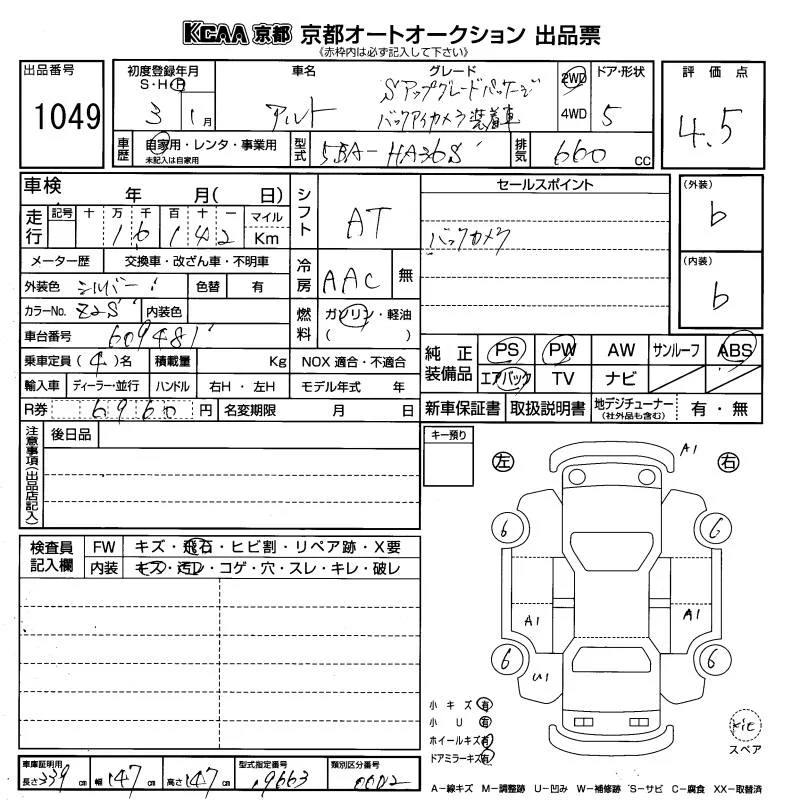 KCAA 京都 京都オートオークション 出品票
《赤枠内は必ず記入して下さい》
出品番号 1049
初度登録年月 S・H・R 3 1月
車名 アルト
グレード Sアップグレードパッケージ バックアイカメラ装着車
2WD 4WD
ドア・形状 5
評価点 4.5
車歴 自家用・レンタ・事業用 未記入は自家用
型式 5BA-HA36S
排気 660 cc
車検 年 月( 日)
シフト AT
セールスポイント
バックカメラ
(外装) b
(内装) b
走行 記号 十 万 千 百 十 一 マイル Km
1 6 1 4 2
メーター歴 交換車・改ざん車・不明車
冷房 AAC 無
外装色 シルバー 色替 有
カラーNo. Z2S 内装色
燃料 ガソリン・軽油 ( )
車台番号 609481
乗車定員(4)名 積載量 Kg NOX 適合・不適合
輸入車 ディーラー・並行 ハンドル 右H・左H モデル年式 年
R券 6960 円 名変期限 月 日
純正装備品 PS PW AW サンルーフ ABS
エアバック TV ナビ
新車保証書 取扱説明書 地デジチューナー (社外品も含む) 有・無
注意事項(出品店記入) 後日品
キー預り
左 右
A1
6 6
A1 A1
6 6
U1
検査員記入欄 FW キズ・飛石・ヒビ割・リペア跡・X要
内装 キズ・汚レ・コゲ・穴・スレ・キレ・破レ
小キズ 有
小U 有
ホイールキズ 有
ドアミラーキズ 有
kit
スペア
車庫証明用 長さ 339 cm 幅 147 cm 高さ 147 cm
型式指定番号 19663
類別区分番号 0002
A-線キズ M-調整跡 U-凹み W-補修跡 S-サビ C-腐食 XX-取替済